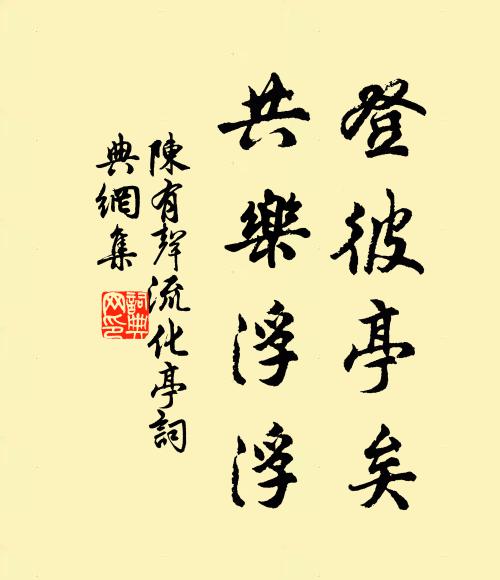 登彼亭矣
共樂浮浮
陳有聲流化亭詞
典網集
詞典
网印